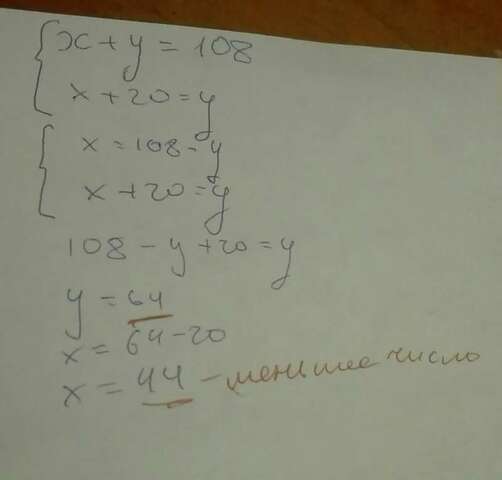 x + y = 108
x + 20 = y
x = 108 - y
x + 20 = y
108 - y + 20 = y
y = 64
x = 64 - 20
x = 44 - меньшее число